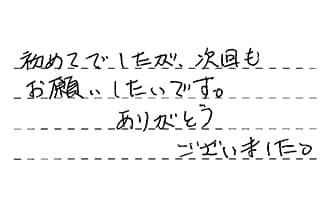 初めてでしたが、次回も
お願いしたいです。
ありがとう
ございました。